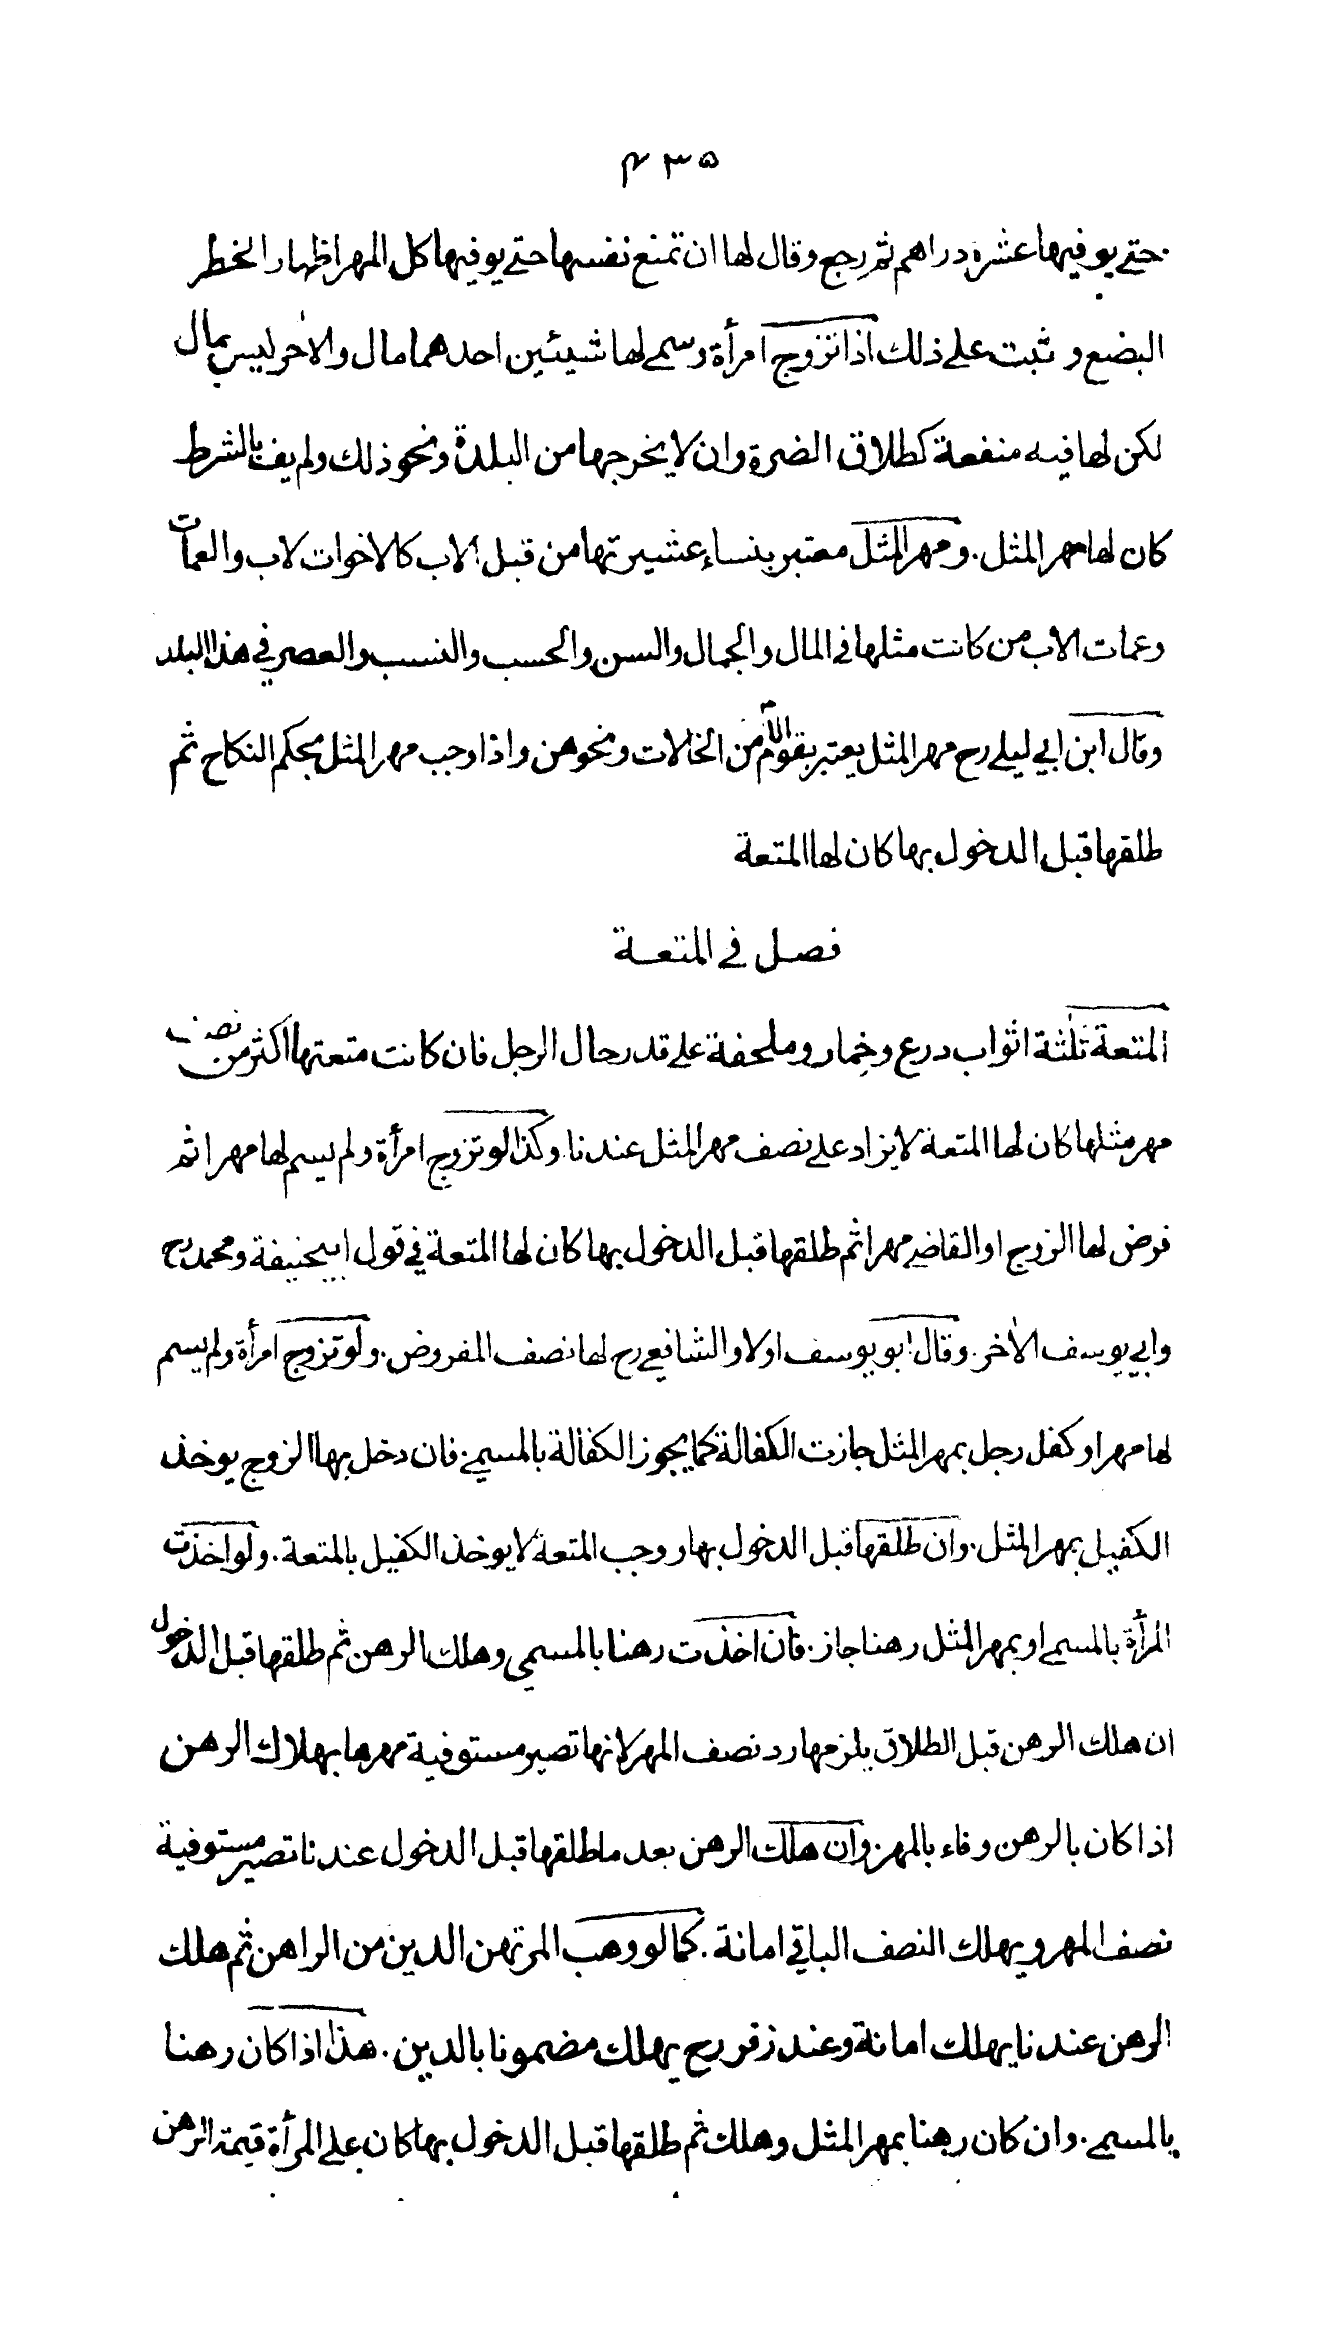 ۴۳۵
حتے يوفيها عشرة دراهم ثم رجع وقال لها ان تمنع نفسها حتے يوفيها كل المهر اظهار الخطر
البضع و ثبت علے ذلك اذا تزوج امرأة وسمے لها شيئين احدهما مال والاخر ليس بمال
لكن لها فيه منفعة كطلاق الضرة وان لا يخرجها من البلدة ونحو ذلك ولم يف بالشرط
كان لها مهر المثل . ومهر المثل معتبر بنساء عشيرتها من قبل الاب كالاخوات لاب والعمات
وعمات الاب من كانت مثلها في المال والجمال والسن والحسب والنسب والعصر في هذا البلد
وقال ابن ابي ليلے رح مهر المثل يعتبر بقوم الام من الخالات ونحوهن واذا وجب مهر المثل بحكم النكاح ثم
طلقها قبل الدخول بها كان لها المتعة
فصل في المتعة
المتعة ثلثة اثواب درع وخمار وملحفة علے قدر حال الرجل فان كانت متعتها اكثر من نصف
مهر مثلها كان لها المتعة لا يزاد علے نصف مهر المثل عندنا . وكذا لو تزوج امرأة ولم يسم لها مهرا ثم
فرض لها الزوج او القاضے مهرا ثم طلقها قبل الدخول بها كان لها المتعة في قول ابيحنيفة ومحمد رح
وابي يوسف الأخر . وقال ابو يوسف اولا والشافعے رح لها نصف المفروض . ولو تزوج امرأة ولم يسم
لها مهرا و كفل رجل بمهر المثل جازت الكفالة كما يجوز الكفالة بالمسمے . فان دخل بها الزوج يوخذ
الكفيل بمهر المثل . وان طلقها قبل الدخول بها و وجب المتعة لا يوخذ الكفيل بالمتعة . ولو اخذت
المرأة بالمسمے او بمهر المثل رهنا جاز . فان اخذت رهنا بالمسمى وهلك الرهن ثم طلقها قبل الدخول
ان هلك الرهن قبل الطلاق يلزمها رد نصف المهر لانها تصير مستوفية مهرها بهلاك الرهن
اذا كان بالرهن وفاء بالمهر . وان هلك الرهن بعد ما طلقها قبل الدخول عندنا تصير مستوفية
نصف المهر و يهلك النصف الباقي امانة . كما لو وهب المرتهن الدين من الراهن ثم هلك
الرهن عندنا يهلك امانة وعند زفر رح يهلك مضمونا بالدين . هذا اذا كان رهنا
بالمسمے . وان كان رهنا بمهر المثل وهلك ثم طلقها قبل الدخول بها كان علے المرأة قيمة الرهن